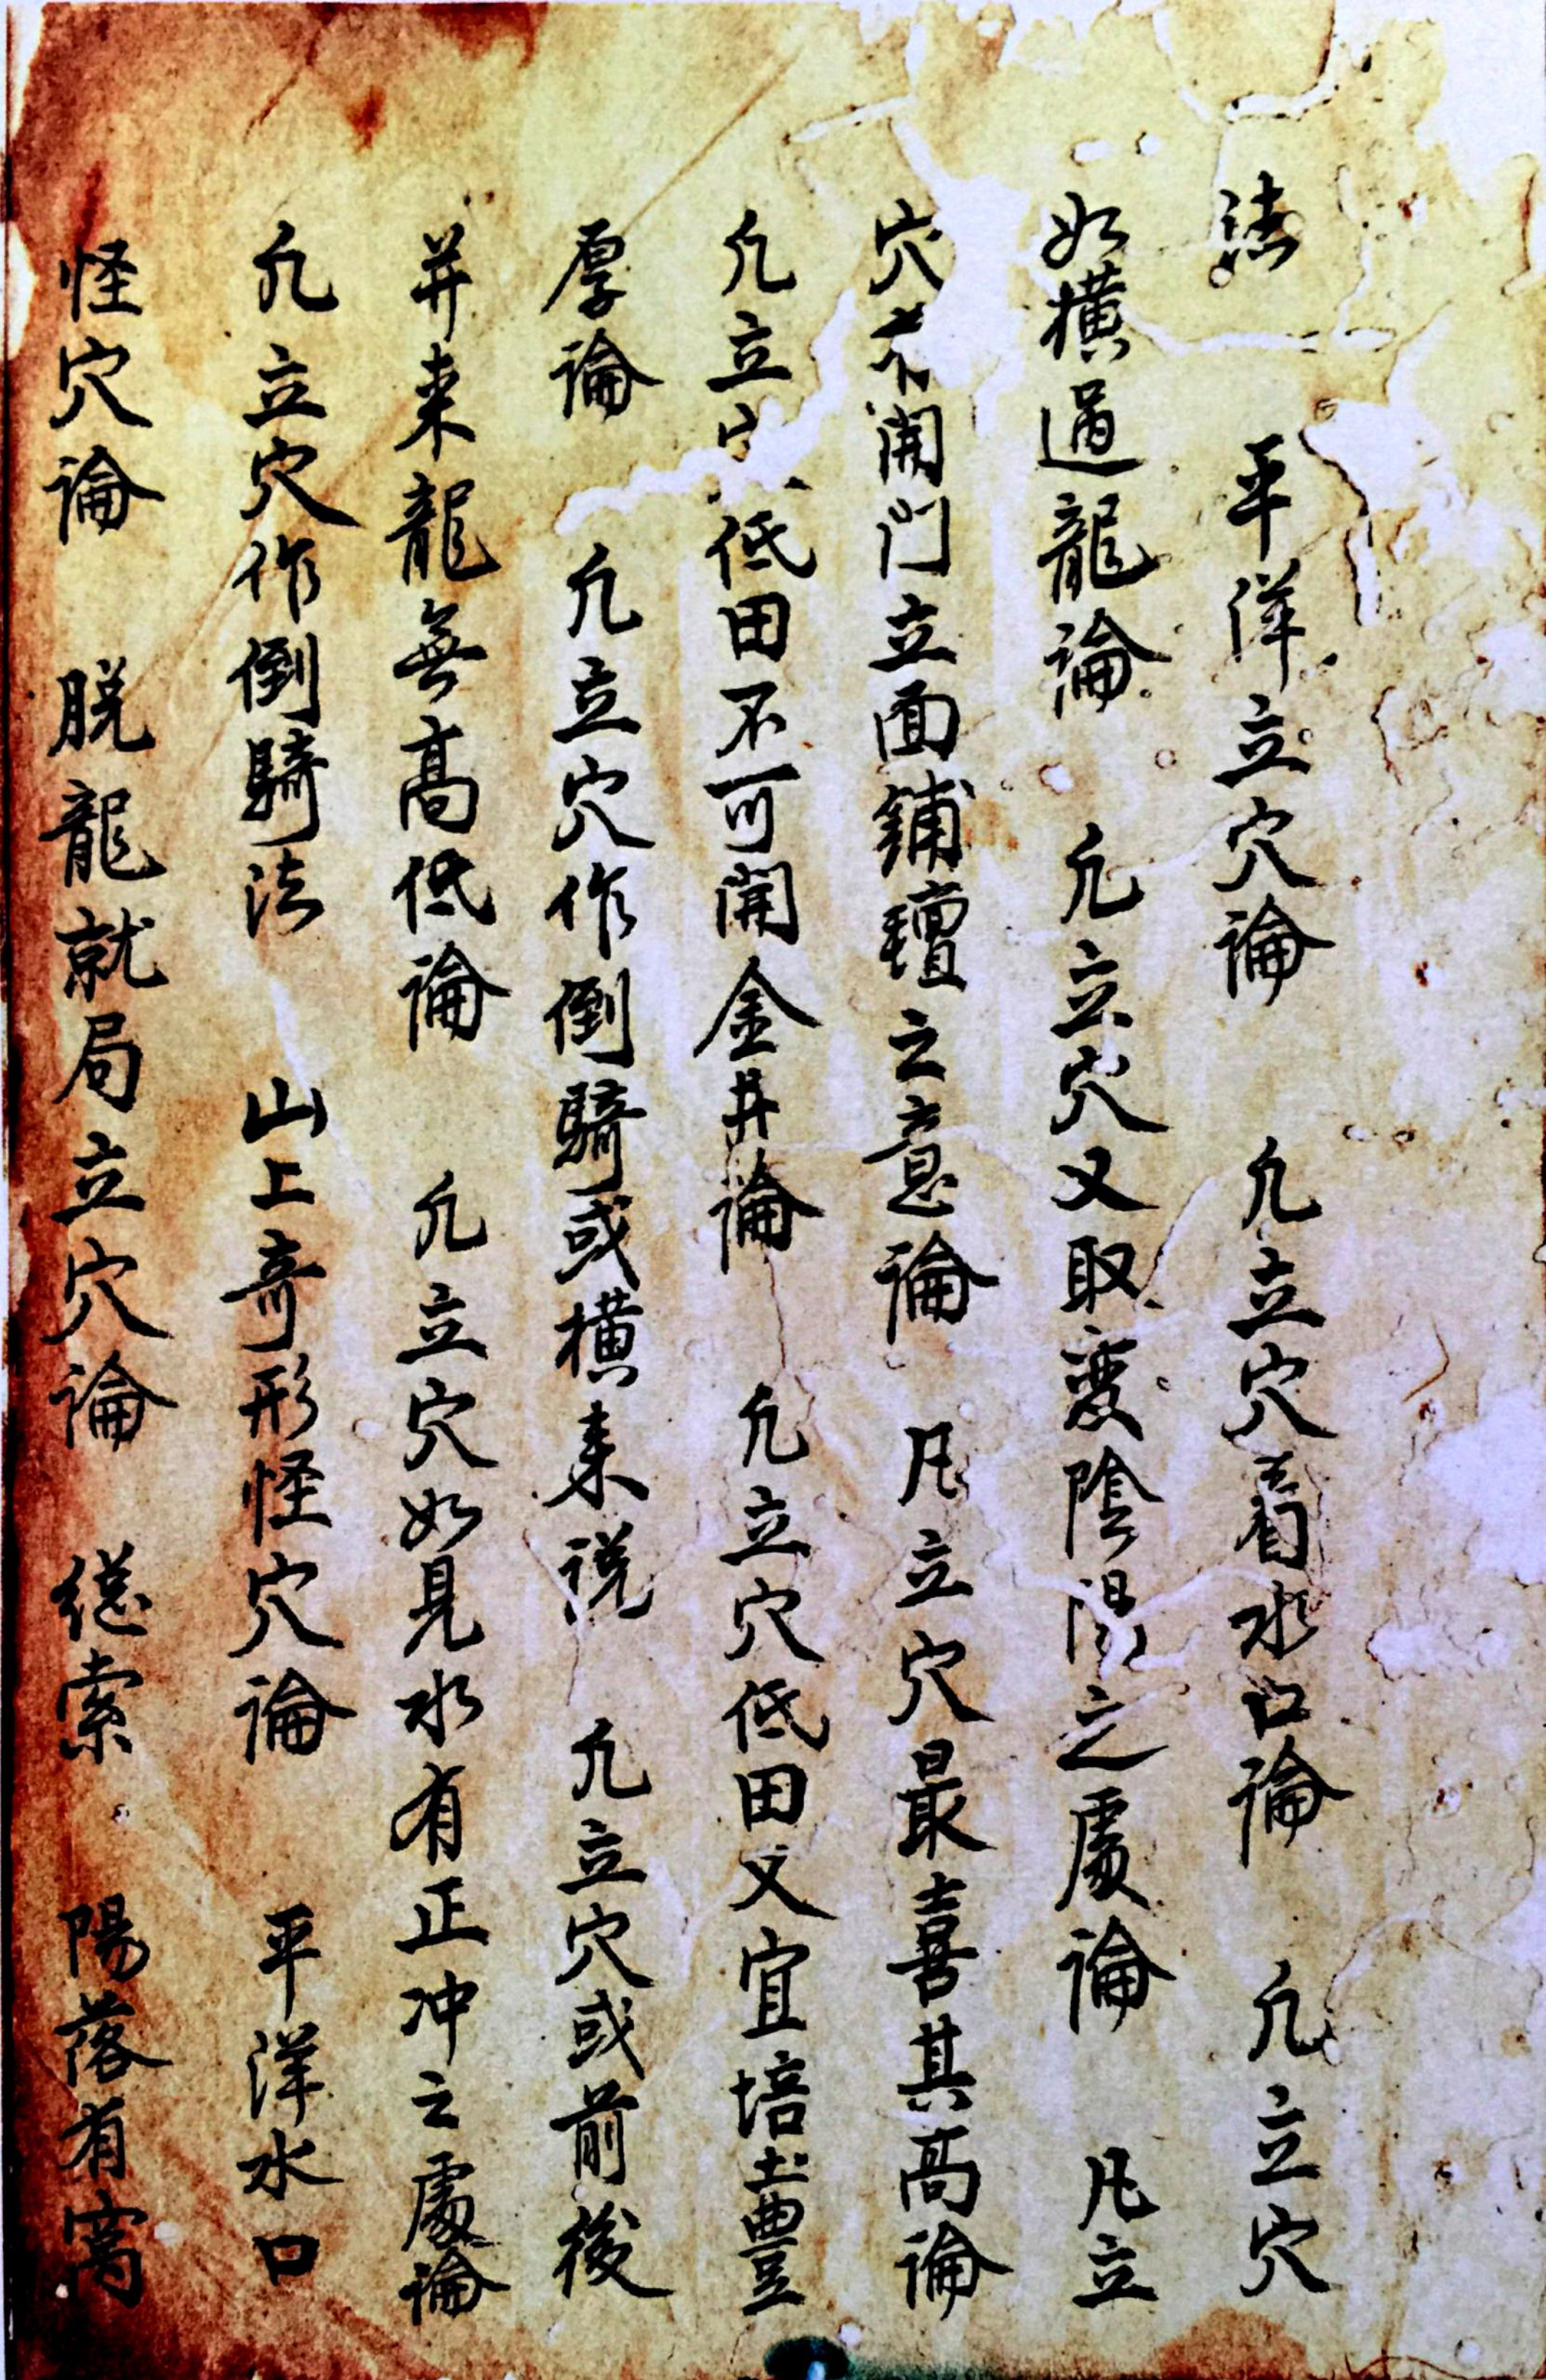 法 平洋立穴論 凢立穴看水口論 凢立穴
如橫過龍論 凢立穴又取变陰陽之處論 凡立
穴不開门立面鋪之意論 凡立穴最喜其高論
凢立穴低田不可開金井論 凢立穴低田又宜培土豊
厚論 凢立穴作倒騎或橫来説 凢立穴或前後
并来龍無高低論 凢立穴如見水有正冲之處論
凢立穴作倒騎法 山上奇形怪穴論 平洋水口
怪穴論 脱龍就局立穴論 總索 陽落有窩